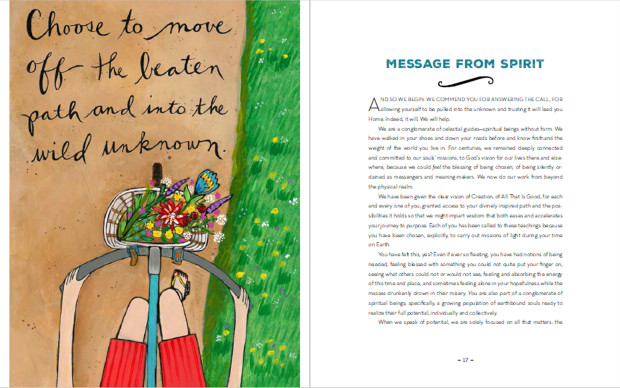 Choose to move
off the beaten
path and into the
wild unknown.
MESSAGE FROM SPIRIT
AND SO WE BEGIN. WE COMMEND YOU FOR ANSWERING THE CALL, FOR
allowing yourself to be pulled into the unknown and trusting it will lead you
Home. Indeed, it will. We will help.
We are a conglomerate of celestial guides—spiritual beings without form. We
have walked in your shoes and down your roads before and know firsthand the
weight of the world you live in. For centuries, we remained deeply connected
and committed to our souls' missions, to God's vision for our lives there and else-
where, because we could feel the blessing of being chosen, of being silently or-
dained as messengers and meaning makers. We now do our work from beyond
the physical realm.
We have been given the clear vision of Creation, of All That Is Good, for each
and every one of you, granted access to your divinely inspired path and the pos-
sibilities it holds so that we might impart wisdom that both eases and accelerates
your journey to purpose. Each of you has been called to these teachings because
you have been chosen, explicitly, to carry out missions of light during your time
on Earth.
You have felt this, yes? Even if ever so fleeting, you have had notions of being
needed, feeling blessed with something you could not quite put your finger on,
seeing what others could not or would not see, feeling and absorbing the energy
of this time and place, and sometimes feeling alone in your hopefulness while the
masses drunkenly drown in their misery. You are also part of a conglomerate of
spiritual beings, specifically, a growing population of earthbound souls ready to
realize their full potential, individually and collectively.
When we speak of potential, we are solely focused on all that matters: the
– 17 –